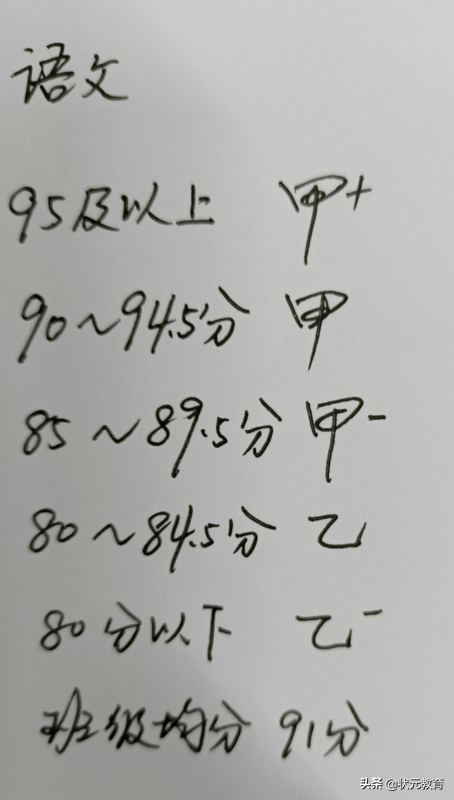 语文
95及以上 甲+
90~94.5分 甲
85~89.5分 甲-
80~84.5分 乙
80分以下 乙-
班级均分 91分
头条 @状元教育